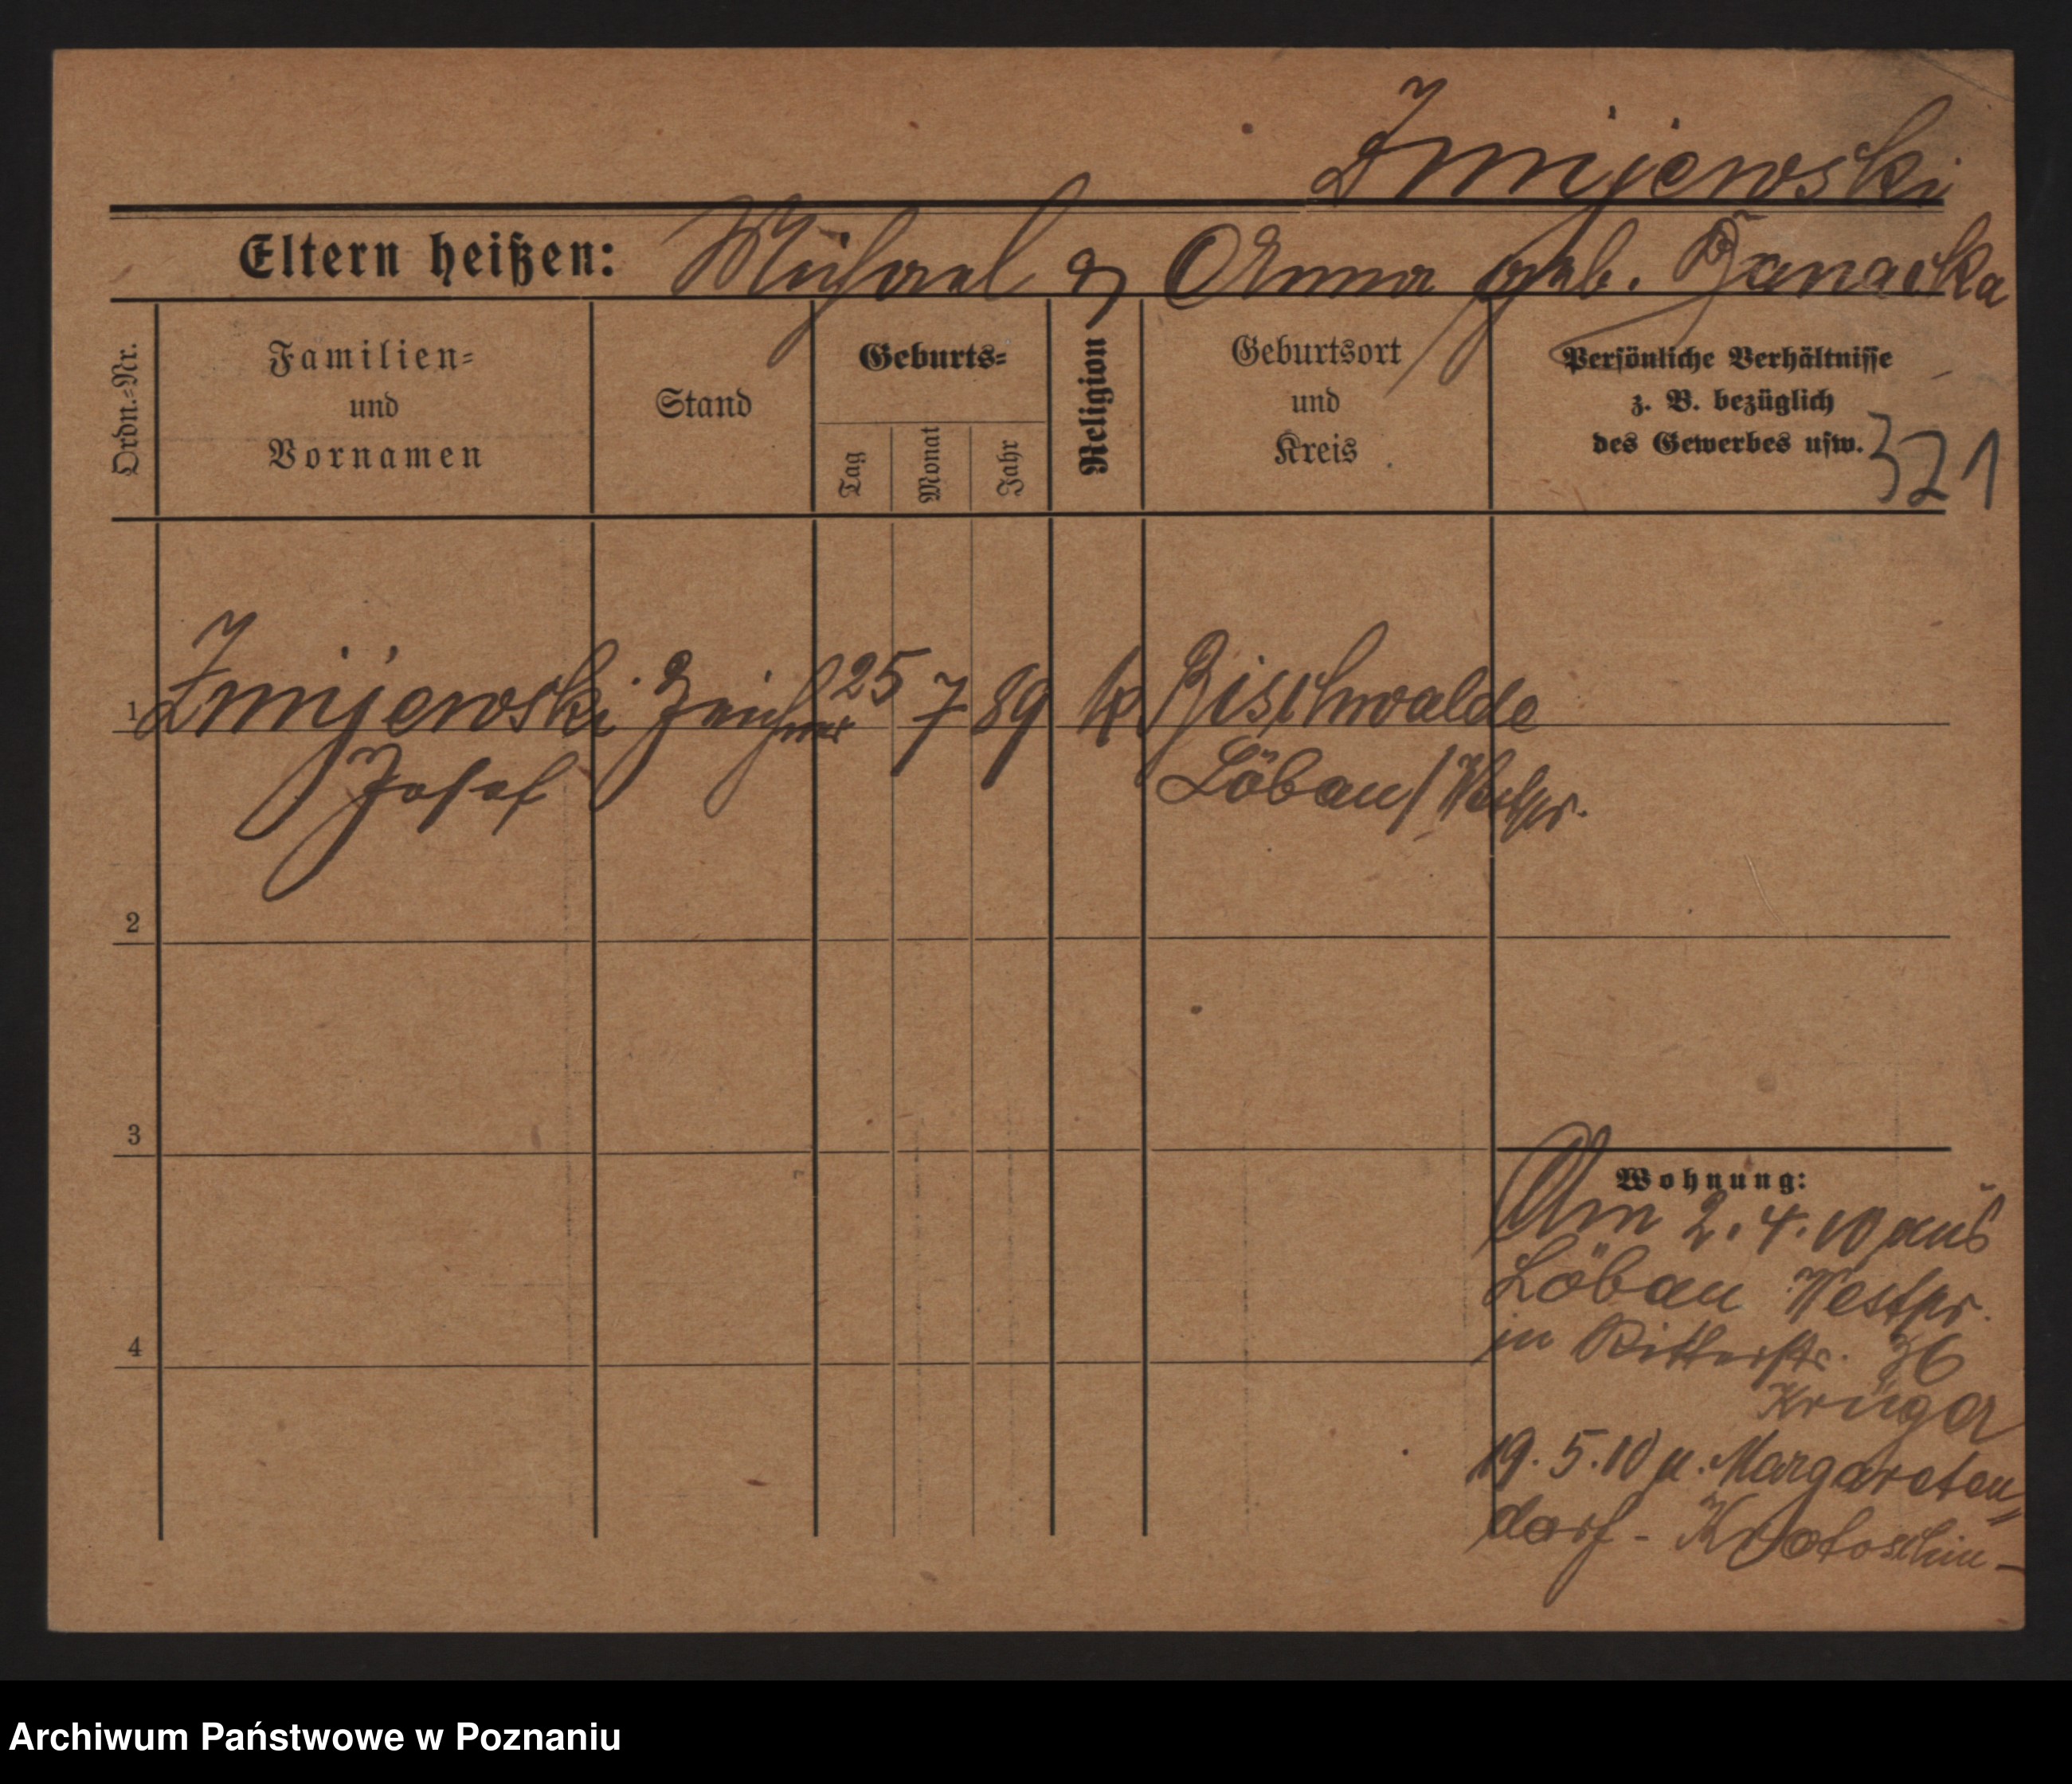 Zmijewski
Eltern heißen: Michael & Anna geb. Banacka
Ordn.-Nr.
Familien-
und
Vornamen
Stand
Geburts-
Tag
Monat
Jahr
Religion
Geburtsort
und
Kreis
Persönliche Verhältnisse
z. B. bezüglich
des Gewerbes usw.
321
1 Zmijewski Zeichner 25 7 89 k Bischwalde
Josef Löbau/Westpr.
2
3
4
Wohnung:
Am 2.4.10 aus
Löbau Westpr.
in Ritterstr. 36
Krüger
19.5.10 n. Margareten=
dorf - Krotoschin -
Archiwum Państwowe w Poznaniu